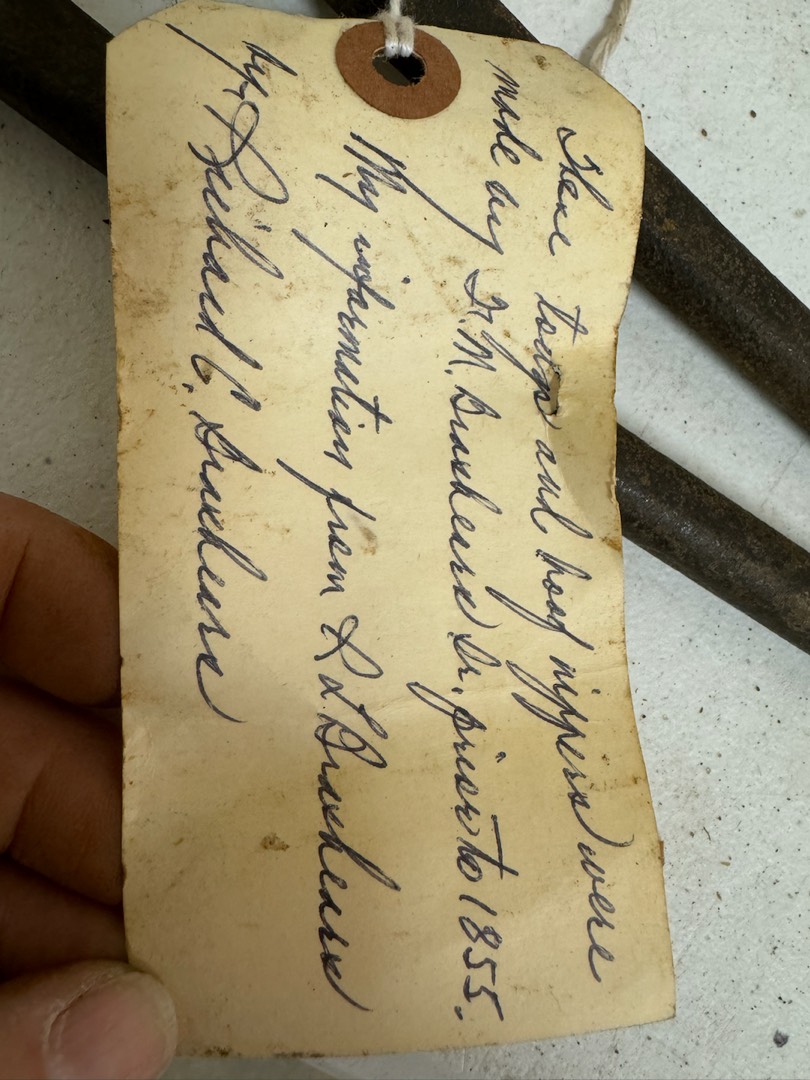 These tongs and hoof nippers were
made by F. M. Brashears Sr. prior to 1855.
My information from L L Brashears
by Richard C. Brashears